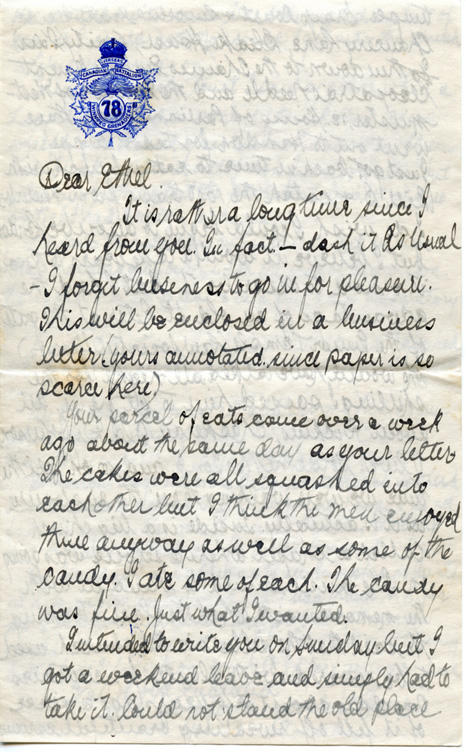 OVERSEAS
CANADIAN BATTALION
78
WINNIPEG GRENADIERS
Dear Ethel.
It is rather a long time since I
heard from you. In fact – dash it as usual
– I forgot business to go in for pleasure.
This will be enclosed in a business
letter (yours annotated, since paper is so
scarce here)
Your parcel of eats came over a week
ago about the same day as your letter
The cakes were all squashed into
each other but I think the men enjoyed
them anyway as well as some of the
candy. I ate some of each. The candy
was fine. Just what I wanted.
I intended to write you on Sunday but I
got a weekend leave and simply had to
take it. Could not stand the old place